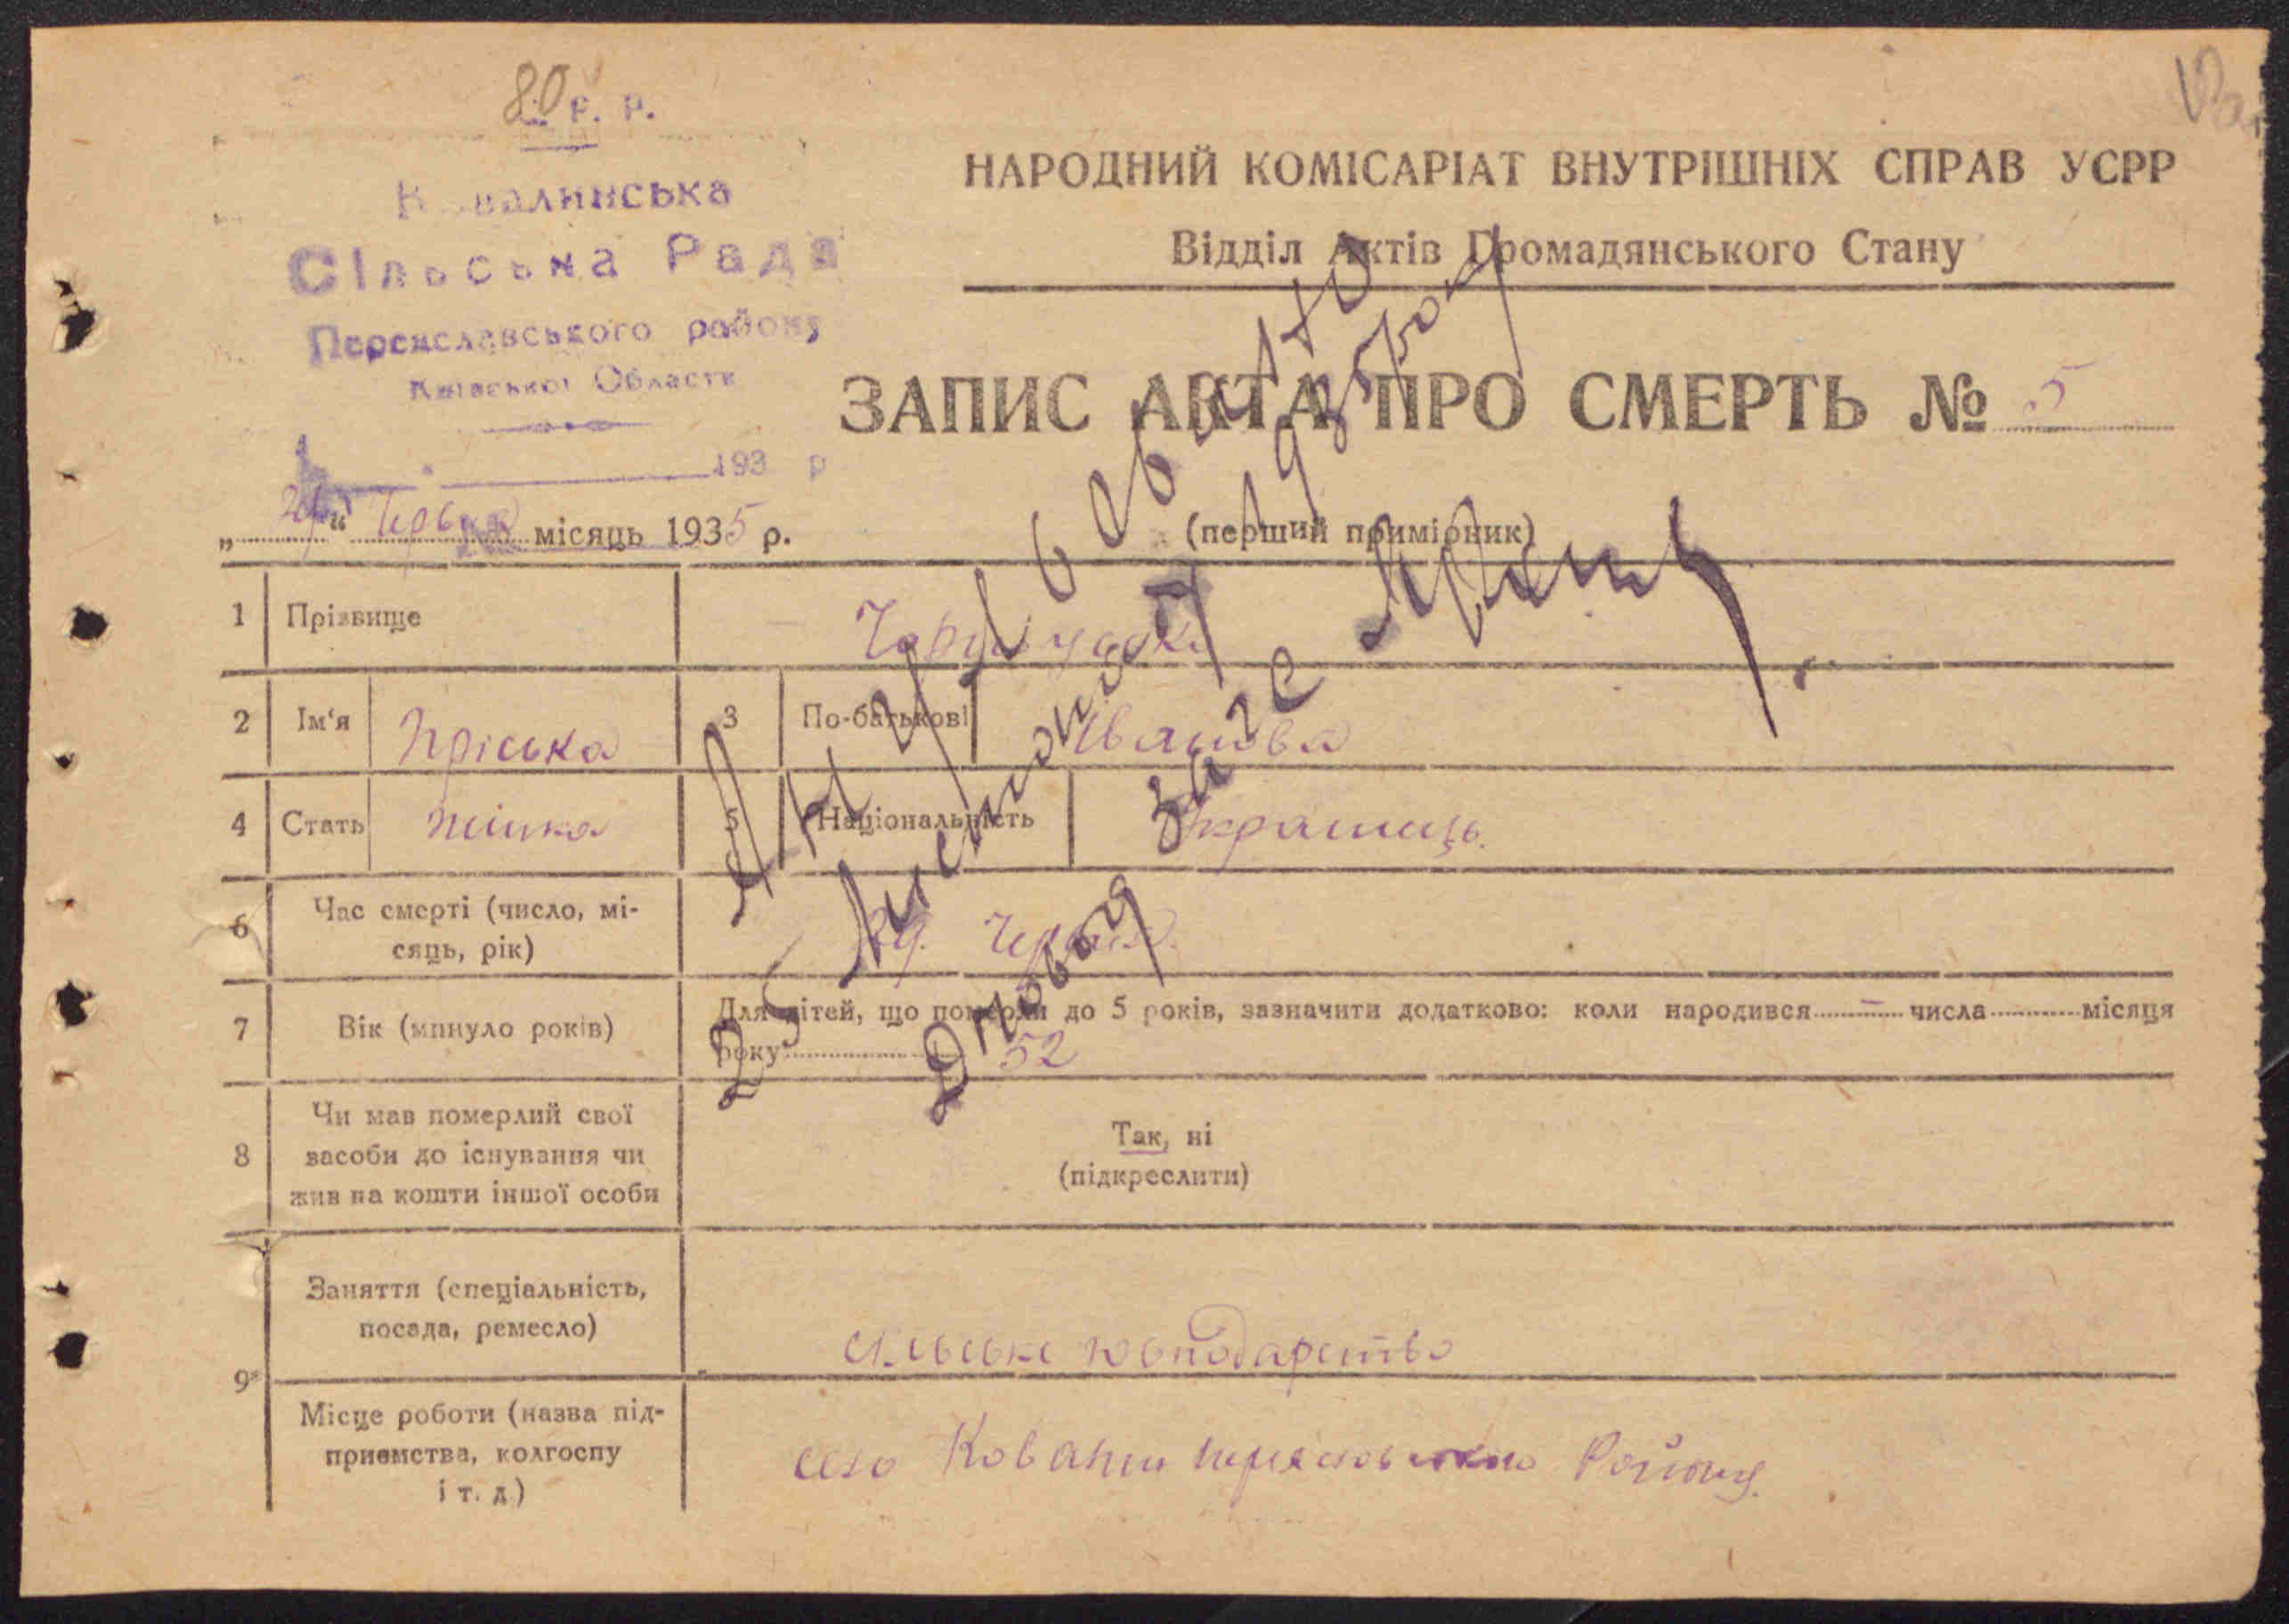 80
Р. Р.
НАРОДНИЙ КОМІСАРІАТ ВНУТРІШНІХ СПРАВ УСРР
Відділ Актів Громадянського Стану
Ковалинська
Сільська Рада
Переяславського району
Київської Області
193 р
ЗАПИС АКТА ПРО СМЕРТЬ № 5
(перший примірник)
„29“ Червня місяць 1935 р.
1 Прізвище
2 Ім'я Пріська 3 По-батькові Іванова
4 Стать жінка 5 Національність Українець.
6 Час смерті (число, мі-
сяць, рік) 29. Червня
7 Вік (минуло років) Для дітей, що померли до 5 років, зазначити додатково: коли народився — числа місяця
року 52
8 Чи мав померлий свої
засоби до існування чи
жив на кошти іншої особи
Так, ні
(підкреслити)
9 Заняття (спеціальність,
посада, ремесло) сільське господарство
Місце роботи (назва під-
приємства, колгоспу
і т. д.) село Ковалин Переяславського Району.
Анульовано
25
1935 року
загс